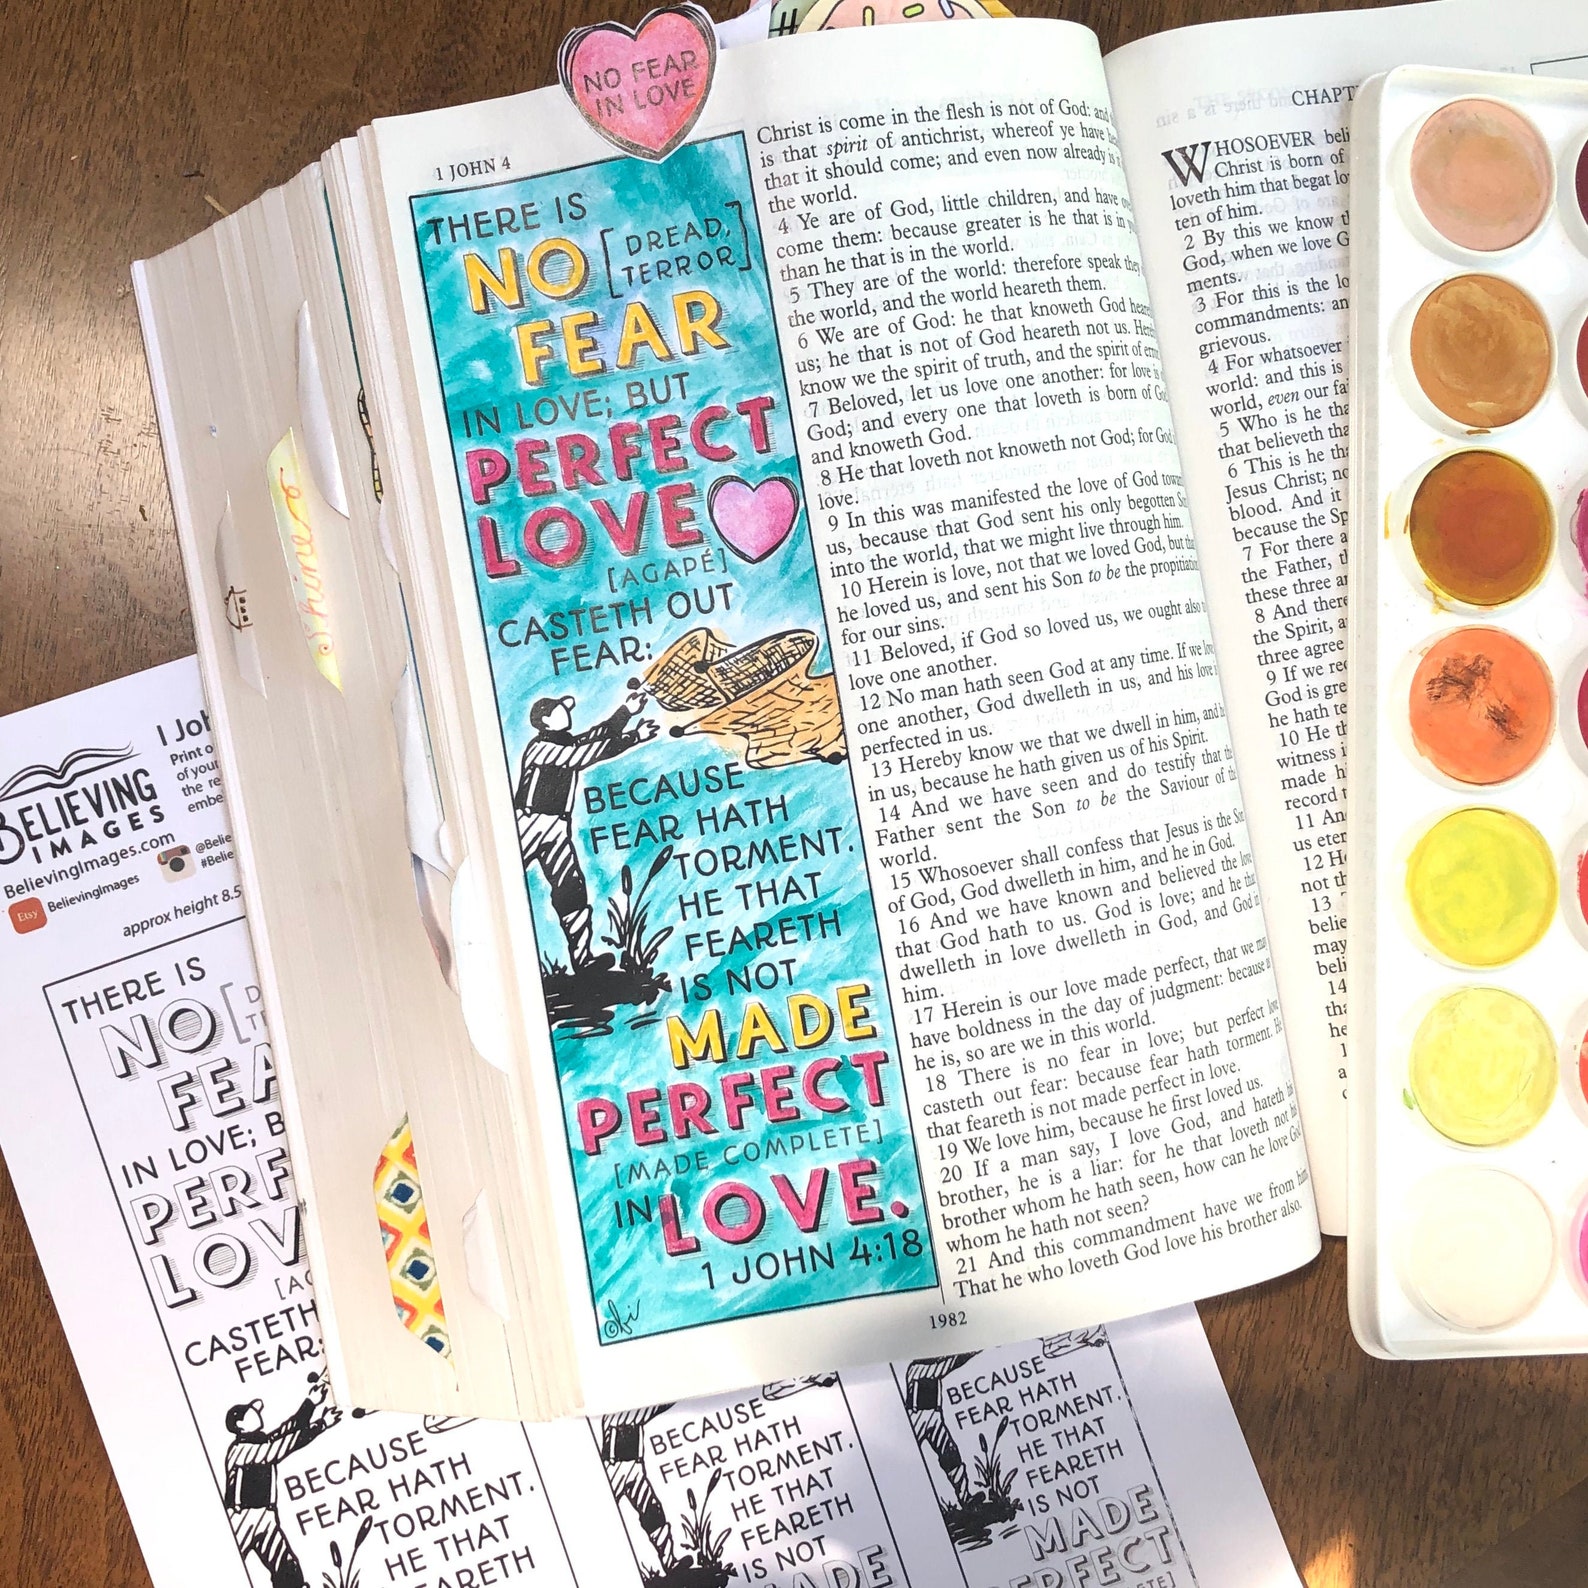 NO FEAR
IN LOVE
1 JOHN 4
THERE IS
NO [DREAD,
TERROR]
FEAR
IN LOVE; BUT
PERFECT
LOVE
[AGAPÉ]
CASTETH OUT
FEAR:
BECAUSE
FEAR HATH
TORMENT.
HE THAT
FEARETH
IS NOT
MADE
PERFECT
[MADE COMPLETE]
IN LOVE.
1 JOHN 4:18
Christ is come in the flesh is not of God: and
is that spirit of antichrist, whereof ye have
that it should come; and even now already is
the world.
4 Ye are of God, little children, and have
come them: because greater is he that is in
than he that is in the world.
5 They are of the world: therefore speak they
the world, and the world heareth them.
6 We are of God: he that knoweth God
us; he that is not of God heareth not us.
know we the spirit of truth, and the spirit of
7 Beloved, let us love one another: for love is
God; and every one that loveth is born of
and knoweth God.
8 He that loveth not knoweth not God; for God
love.
9 In this was manifested the love of God
us, because that God sent his only begotten
into the world, that we might live through him.
10 Herein is love, not that we loved God, but
he loved us, and sent his Son to be the propitiation
for our sins.
11 Beloved, if God so loved us, we ought also
love one another.
12 No man hath seen God at any time. If we
one another, God dwelleth in us, and his love
perfected in us.
13 Hereby know we that we dwell in him, and
in us, because he hath given us of his Spirit.
14 And we have seen and do testify that the
Father sent the Son to be the Saviour of
world.
15 Whosoever shall confess that Jesus is the
of God, God dwelleth in him, and he in God.
16 And we have known and believed the
that God hath to us. God is love; and he
dwelleth in love dwelleth in God, and God
him.
17 Herein is our love made perfect, that we may
have boldness in the day of judgment: because
he is, so are we in this world.
18 There is no fear in love; but perfect
casteth out fear: because fear hath torment.
that feareth is not made perfect in love.
19 We love him, because he first loved us.
20 If a man say, I love God, and hateth
brother, he is a liar: for he that loveth not
brother whom he hath seen, how can he love
whom he hath not seen?
21 And this commandment have we from
That he who loveth God love his brother also.
1982
WHOSOEVER
Christ is born of
loveth him that begat
ten of him.
2 By this we know
God, when we love
ments.
3 For this is the
commandments:
grievous.
4 For whatsoever
world: and this is
world, even our
5 Who is he
that believeth
6 This is he
Jesus Christ;
blood. And it
because the
7 For there
the Father,
these three
8 And
the Spirit,
three agree
9 If we
God is
he hath
10 He
witness
made
record
11
us
12
not
13
may
14
he
Shine
BELIEVING
IMAGES
BelievingImages.com
Etsy
BelievingImages
Print
of your
the
approx height 8.5
THERE IS
NO
IN LOVE;
CASTETH
FEAR:
BECAUSE
FEAR HATH
TORMENT.
HE THAT
FEARETH
BECAUSE
FEAR HATH
TORMENT.
HE THAT
FEARETH
IS NOT
MADE
BECAUSE
FEAR HATH
TORMENT.
HE THAT
FEARETH
IS NOT
MADE
PERFECT